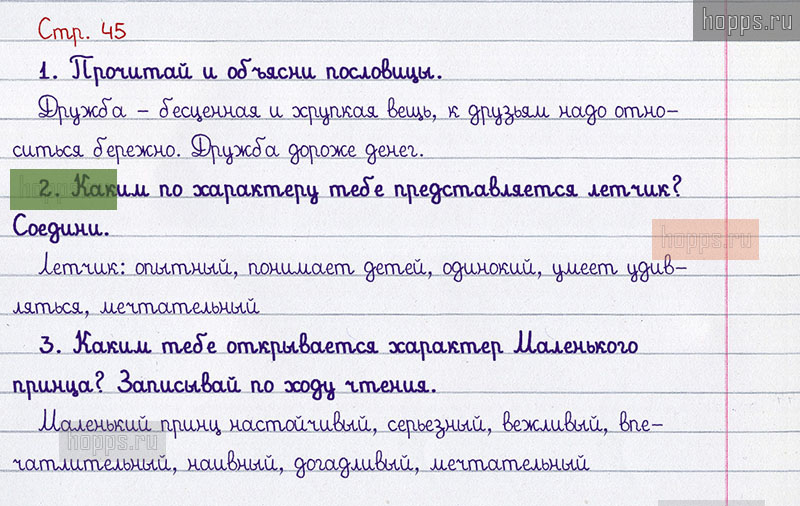 hopps.ru
Стр. 45
1. Прочитай и объясни пословицы.
Дружба – бесценная и хрупкая вещь, к друзьям надо отно-
ситься бережно. Дружба дороже денег.
2. Каким по характеру тебе представляется летчик?
Соедини.
hopps.ru
Летчик: опытный, понимает детей, одинокий, умеет удив-
ляться, мечтательный
3. Каким тебе открывается характер Маленького
принца? Записывай по ходу чтения.
Маленький принц настойчивый, серьезный, вежливый, впе-
hopps.ru
чатлительный, наивный, догадливый, мечтательный